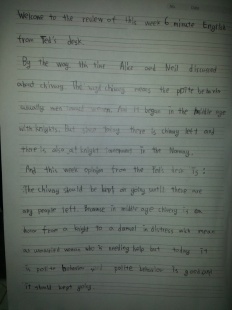 Welcome to the review of this week 6 minute English
from Ted's desk.
By the way this time Alice and Neil discussed
about chivalry. The word chivalry means the polite behavior
usually men toward women. And it began in the middle age
with knights. But since being there is chivalry isn't and
there is also a knight in the
And this week opinion from the Ted's desk is:
The chivalry should be kept on going until there are
any people left. Because in middle age chivalry is an
from a knight to a damsel in distress which means
an unmarried woman who is needing help but today it
is polite behavior and polite behavior is good and
it should kept going.